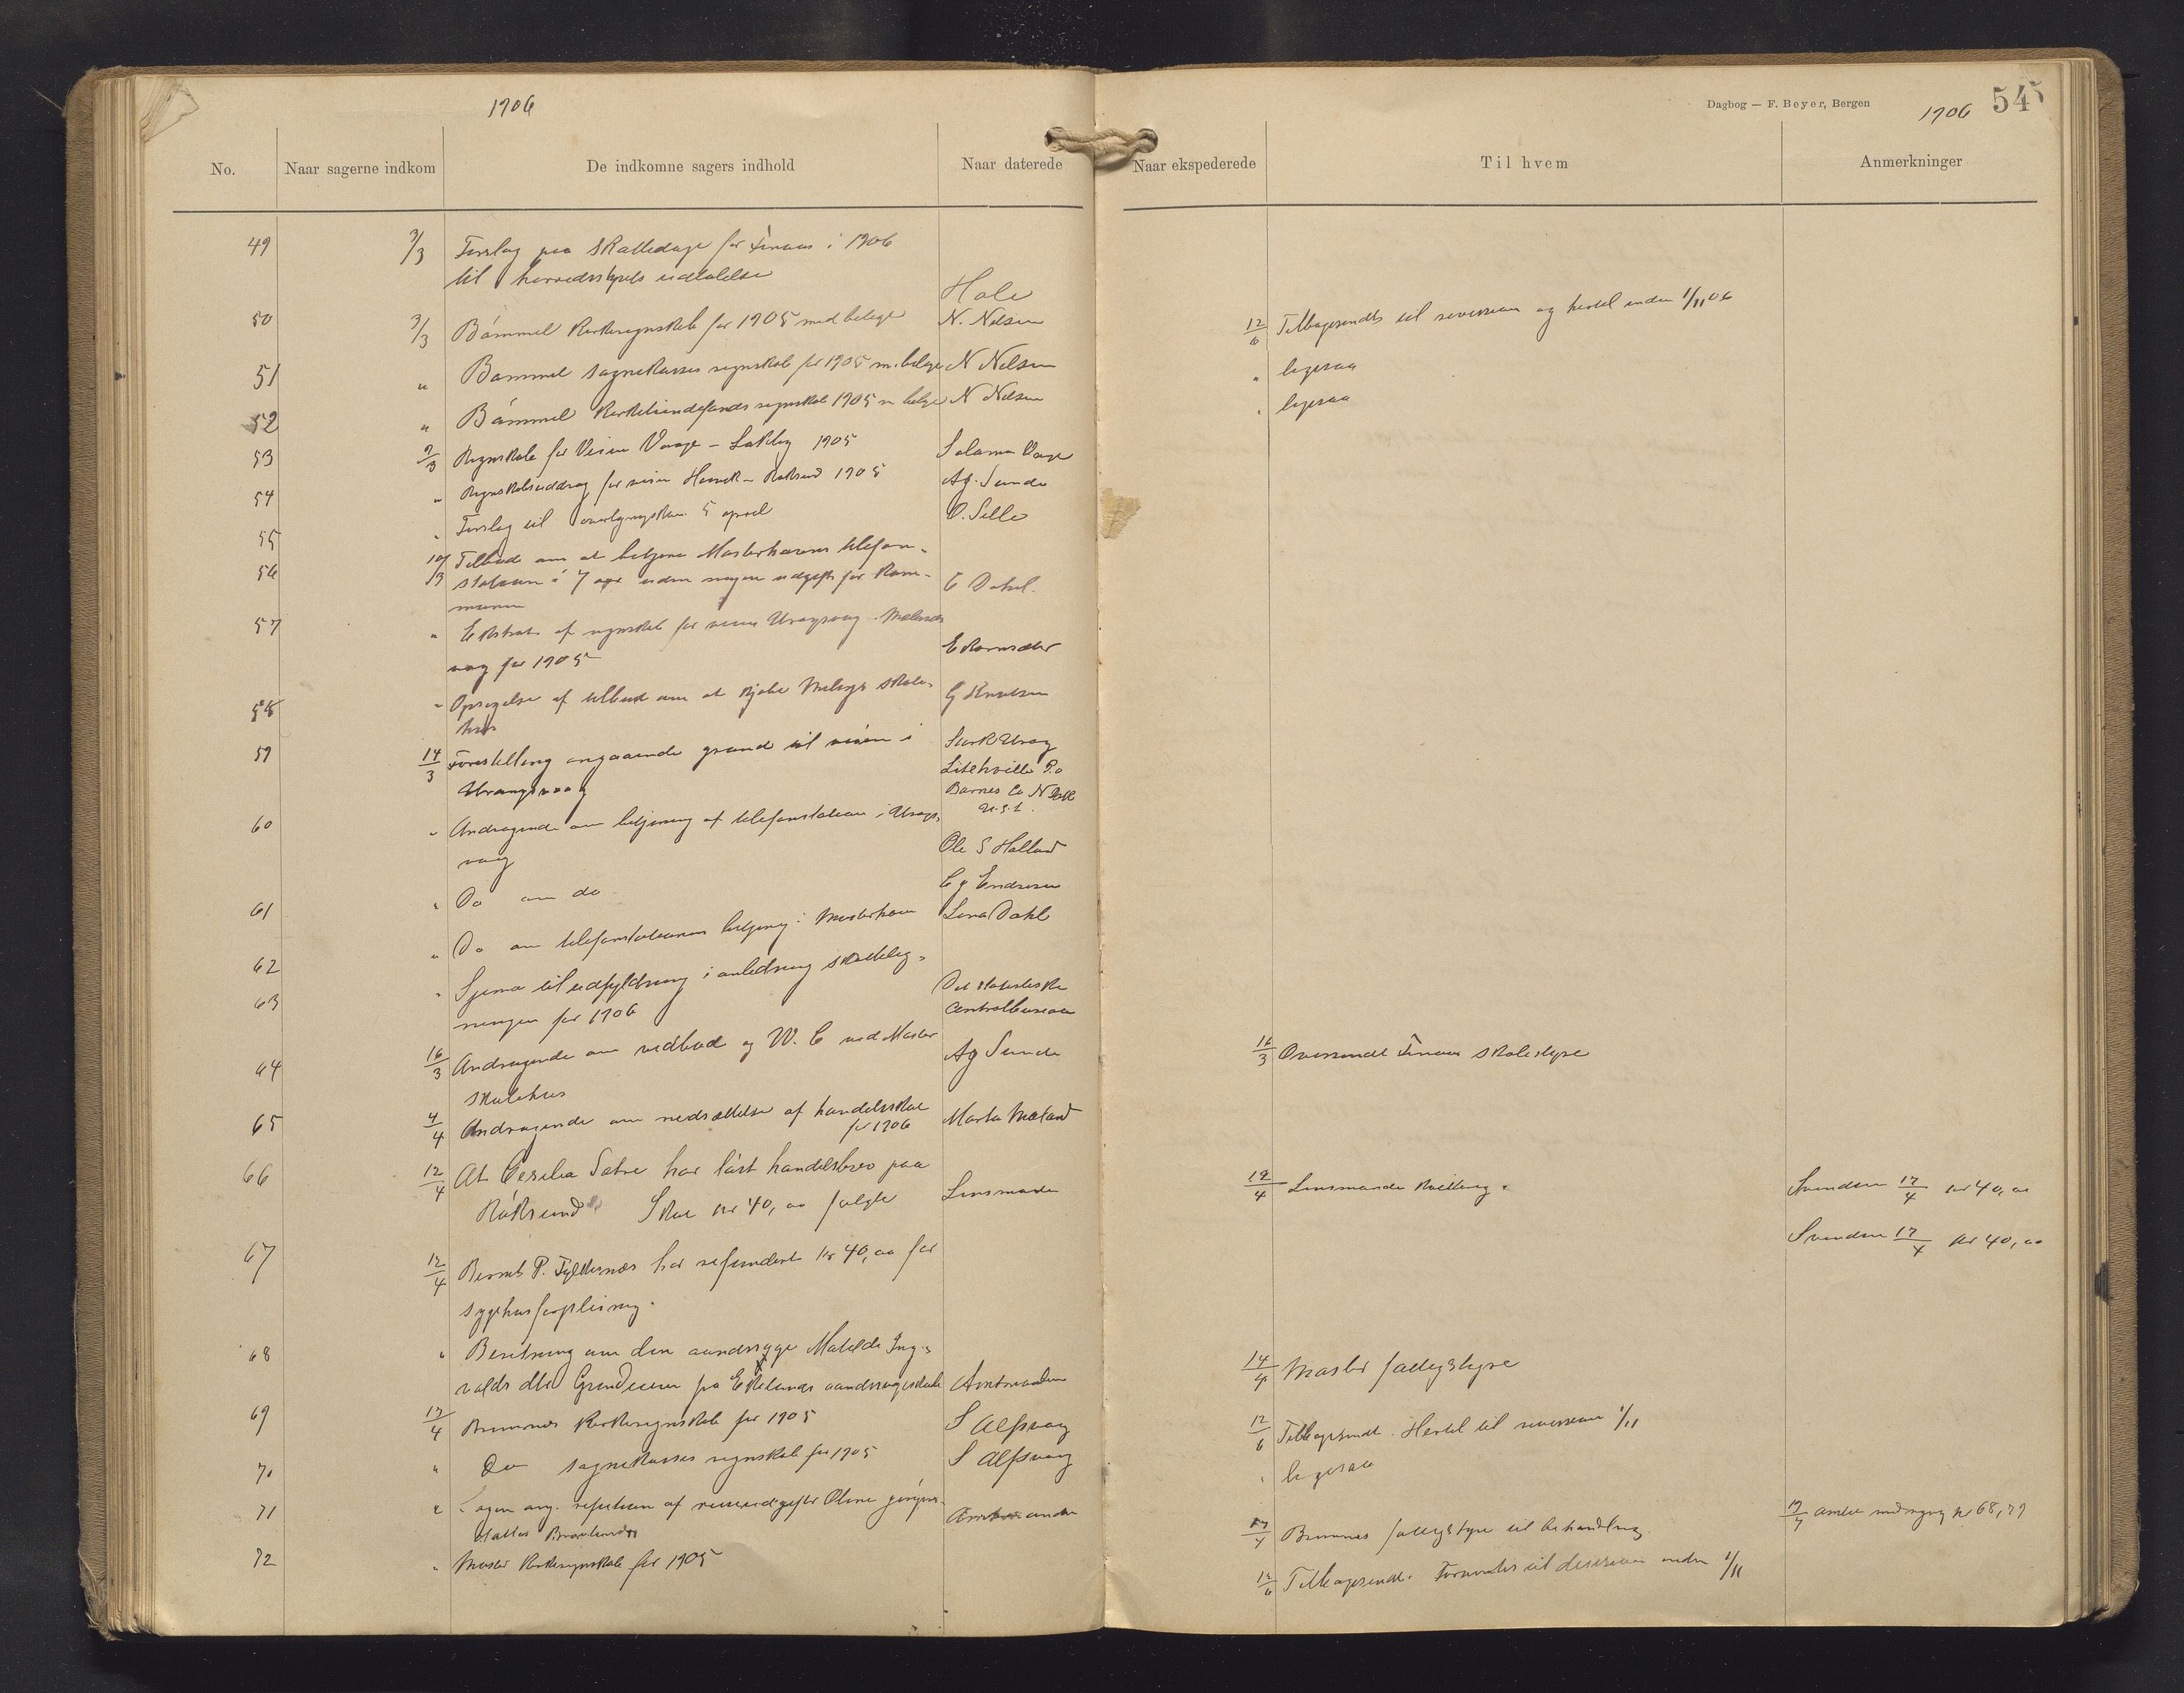 1906
Dagbog — F. Beyer, Bergen
1906 545
No. Naar sagerne indkom De indkomne sagers indhold Naar daterede Naar ekspederede Til hvem Anmerkninger
49 3/3 Forslag paa Skattedage for Finaas i 1906
til herredsstyrets udtalelse
Hole
50 3/3 Bømmel Kirkeregnskab for 1905 med belege N. Nelsen 12/6 Tilbagesendts til revission og hertil inden 1/11 06
51 " Bømmel sognekasses regnskab for 1905 m. belege N Nelsen " ligesaa
52 " Bømmel Kirkelindefonds regnskab 1905 m belege N Nelsen " ligesaa
53 9/3 Regnskab for Veien Vaage – Løkling 1905 Salamon Vaage
54 " Regnskabsuddrag for veien Hovvik – Røksund 1905 Ag. Sunde
55 " Forslag til 5 april O. Lillo
56 10/3 Tilbud om at betjene Mosterhavns telefon-
station i 7 uden nogen udgift for Kom-
munen E Dahl.
57 " Ekstrakt af regnskab for veien Urangsvaag – Mælands
vaag for 1905 E Kornsæter
58 " Opsigelse af tilbud om at kjøbe Melings skole-
hus G Knutsen
59 14/3 Forestilling angaaende grund til veien i
Urangsvaag
Urang
Litchville P.o
Barnes Co N Dak
U.S.
60 " Andragende om betjening af telefonstation i Urangs-
vaag Ole S Halland
61 " Do om do C g Endresen
62 " Do om telefonstationens betjening i Mosterhavn Lena Dahl
63 " Sjema til udfyldning i anledning skattelig-
ningen for 1906
Det statistiske
Centralbureau
64 16/3 Andragende om vedbod og W. C ved Moster
skolehus Ag Sunde 16/3 Oversendt Finaas skolestyre
65 4/4 Andragende om nedsættelse af handelsskat
for 1906 Marta Mæland
66 12/4 At Cesilia Sætre har løst handelsbrev paa
Røksund Skat kr 40,00 følger Lensmanden 12/4 Lensmande Kvittering. Svendsen 17/4 kr 40,00
67 12/4 Bernt P. Fylkesnes har refundert kr 40,00 for
sygehusforpleining. Svendsen 17/4 kr 40,00
68 " Beretning om den aandssyge Matilde Ing-
valds dtr Grindeim fra Eikelunds aandssygeskole Amtmanden 14/4 Moster fattigstyre
69 17/4 Bremnes Kirkeregnskab for 1905 S Alfsvaag 12/6 Tilbagesendt. Hertil til revission 1/11
70 " Do sognekasses regnskab for 1905 S Alfsvaag " ligesaa
71 " Sagen ang. refution af reiseudgifter Oline
datter Amtmanden 17/4 Bremnes fattigstyre til behandling. 17/7 kr 68,79
72 " Moster Kirkeregnskab for 1905 12/6 Tilbagesendt. Forventes til desision inden 1/11